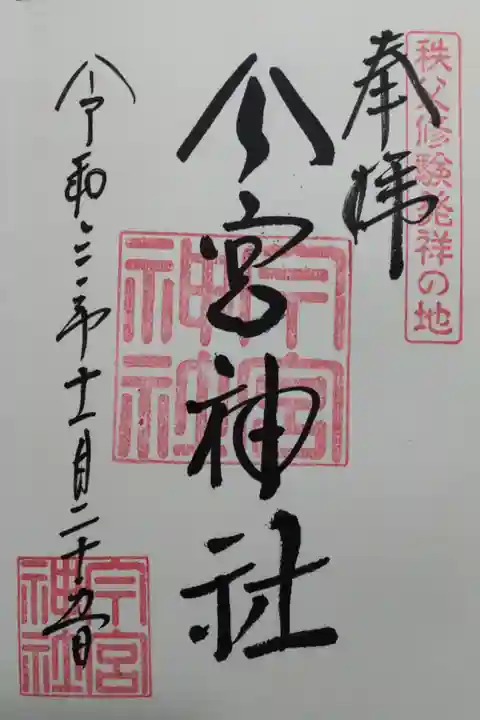 秩父修験発祥の地
奉拝
今宮神社
今宮神社
令和二年十一月二十五日
今宮神社